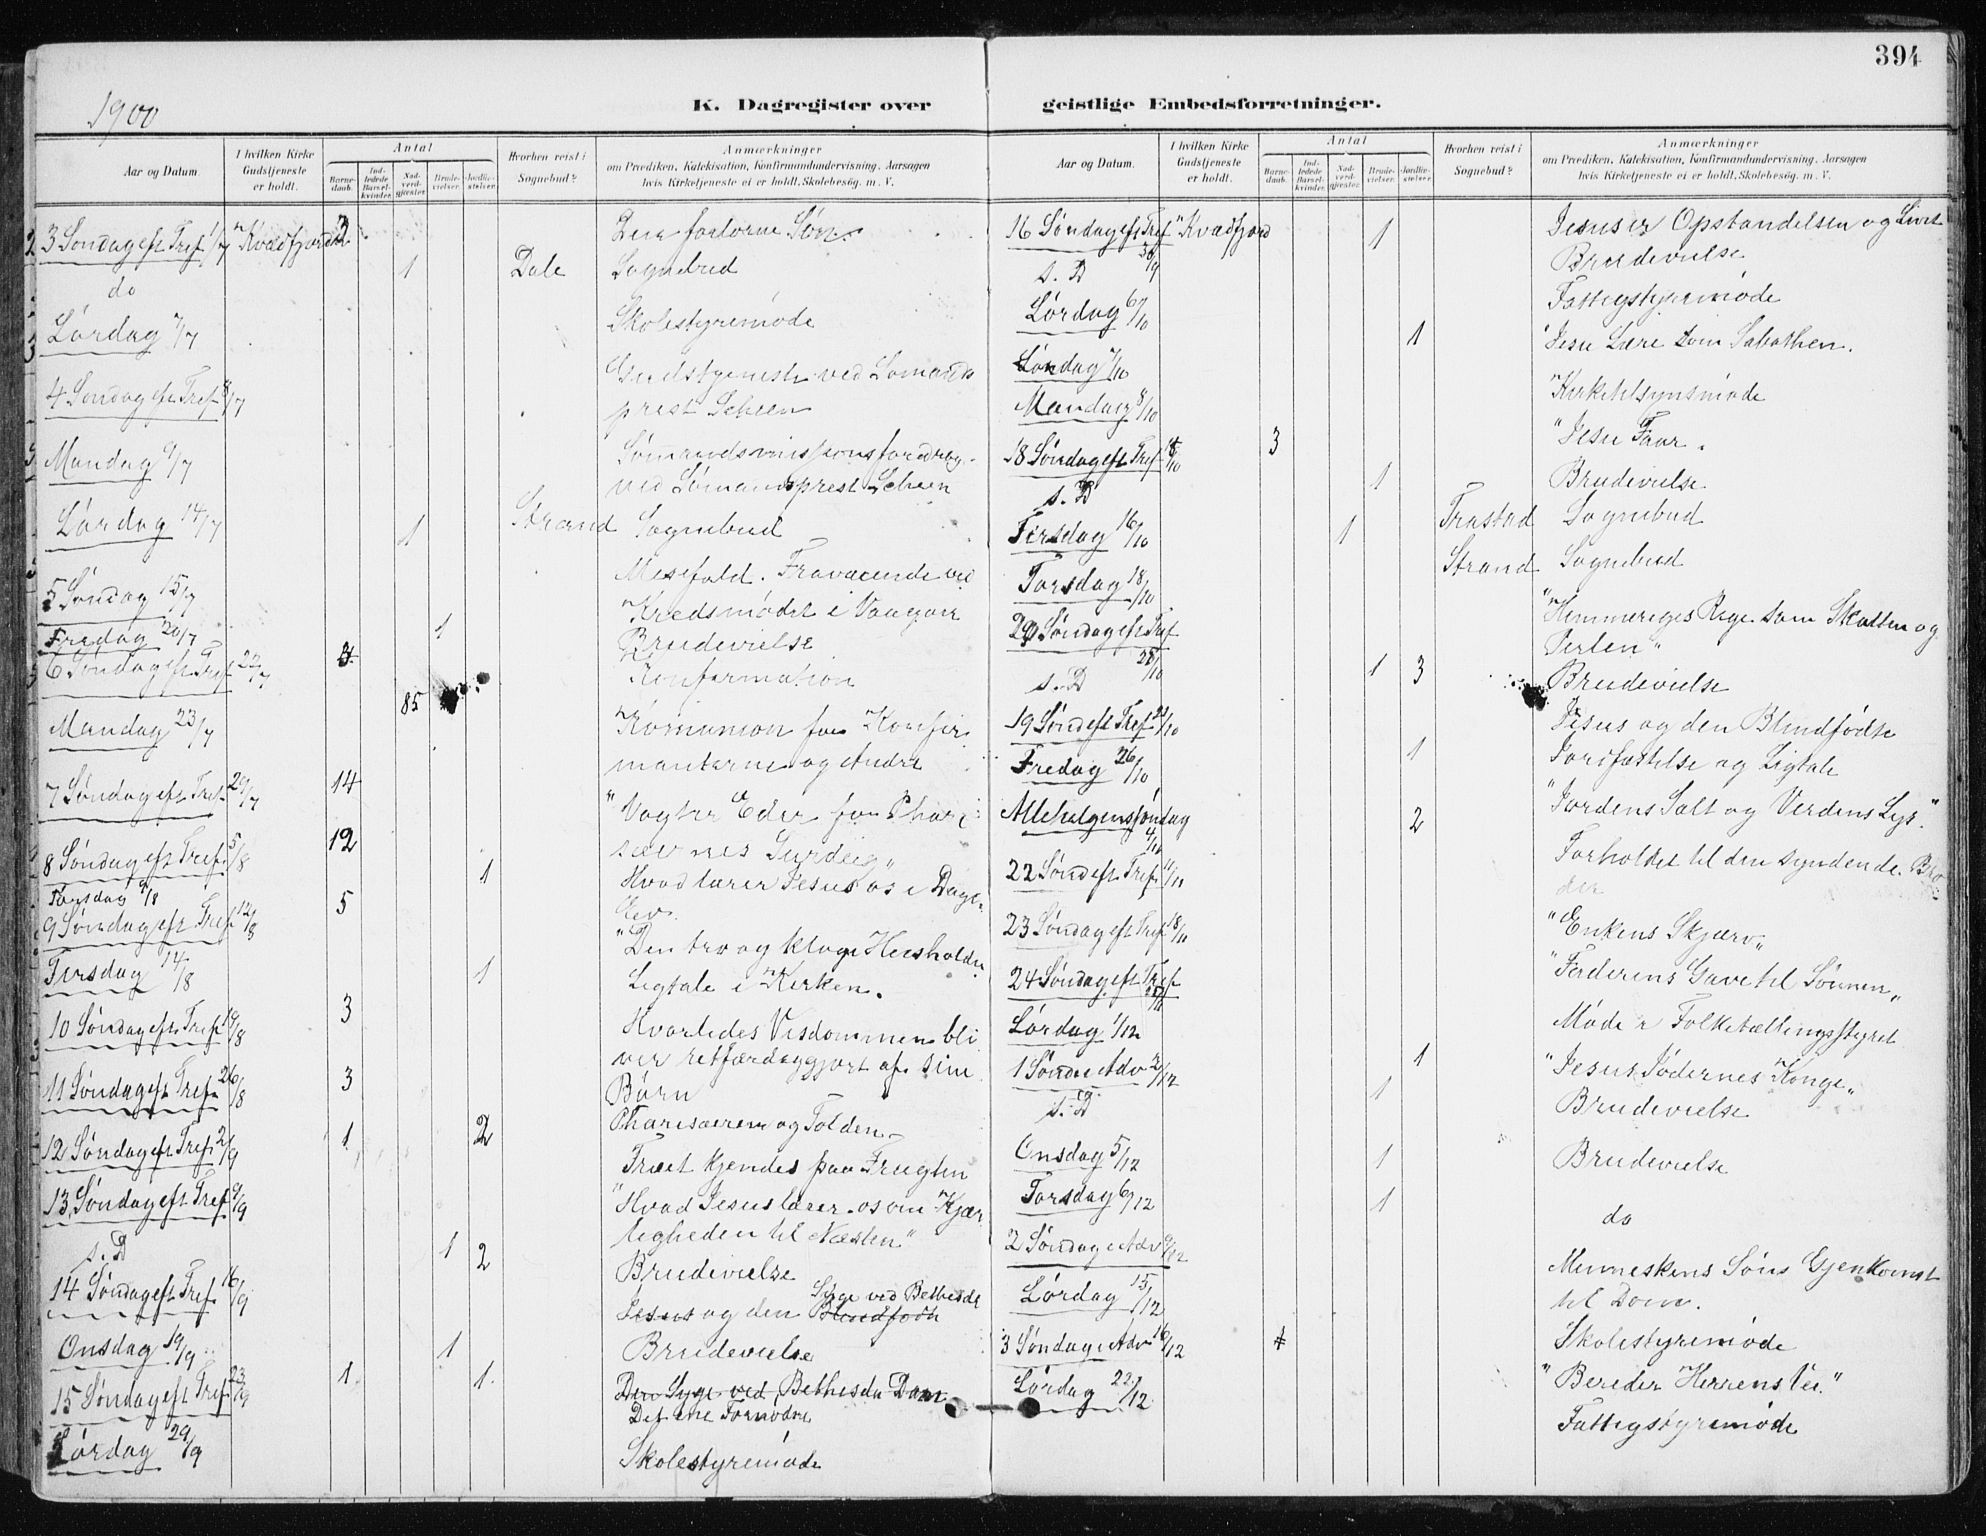 394
1900
K. Dagregister over geistlige Embedsforretninger.
Aar og Datum
I hvilken Kirke Gudstjeneste er holdt.
Antal
Barnedaab.
Indledede Barselkvinder.
Nadverdgjester.
Brudevielser.
Jordfæstelser.
Hvorhen reist i Sognebud?
Anmærkninger
om Prædiken, Katekisation, Konfirmandundervisning. Aarsagen
hvis Kirketjeneste ei er holdt. Skolebesøg. m. V.
3 Søndag eft Tref 1/7 Kvædfjord 2 Den fortorne Søn.
do 1 Dale Sognebud
Lørdag 7/7 Skolestyremøde
4 Søndag eft Tref 8/7 Gudstjeneste ved Sømands
prest Scheen
Mandag 9/7 Sømandsmissionsforedrag
ved Sømandsprest Scheen
Lørdag 14/7 1 Strand Sognebud
5 Søndag 15/7 Mesefald. Fraværende ved
Kredsmødet i Vaagan
Fredag 20/7 1 Brudevielse
6 Søndag eft Tref 22/7 3 Konfirmation
Mandag 23/7 85 Komunion for Konfir
manterne og Andre
7 Søndag eft Tref 29/7 14 "Vogter Eder for Phari
sæernes Surdeig"
8 Søndag eft Tref 5/8 12 Hvad lærer Jesus os i Dagens
Ev.
Torsdag 9/8 1
9 Søndag eft Tref 12/8 5 "Den tro og kloge Husholder
Tirsdag 14/8 1 Ligtale i Kirken.
10 Søndag eft Tref 19/8 3 Hvorledes Visdommen bli
ver retfærdiggjort af sine
11 Søndag eft Tref 26/8 3 Børn
Pharisæeren og Tolden
12 Søndag eft Tref 2/9 1 2 Træet kjendes paa Frugten
13 Søndag eft Tref 9/9 "Hvad Jesus lærer os om Kjær
ligheden til Næsten"
s. D 1 2 Brudevielse
14 Søndag eft Tref 16/9 Jesus og den Blindfødte Syge ved Bethesda
Onsdag 19/9 1 Brudevielse
15 Søndag eft Tref 23/9 1 1 Den Syge ved Bethesda Dam
Det ene Fornødne
Lørdag 29/9 Skolestyremøde
Aar og Datum.
I hvilken Kirke Gudstjeneste er holdt.
Antal
Barnedaab.
Indledede Barselkvinder.
Nadverdgjester.
Brudevielser.
Jordfæstelser.
Hvorhen reist i Sognebud?
Anmærkninger
om Prædiken, Katekisation, Konfirmandundervisning. Aarsagen
hvis Kirketjeneste ei er holdt. Skolebesøg. m. V.
16 Søndag eft Tref 30/9 Kvædfjord 1 Jesus er Opstandelsen og Livet
s. D Brudevielse
Lørdag 6/10 Fattigstyremøde
Søndag 7/10 1 Jesu Lære som Sabathen.
Mandag 8/10 Kirketilsynsmøde
18 Søndag eft Tref 3 "Jesu Faar.
s. D 1 Brudevielse
Tirsdag 16/10 1 Trastad Sognebud
Torsdag 18/10 Strand Sognebud
20 Søndag eft Tref 28/10 "Himmeriges Rige som Skatten og
Perlen"
s. D 1 3 Brudevielse
19 Sønd eft Tref 21/10 Jesus og den Blindfødte
Fredag 26/10 1 Jordfæstelse og Ligtale
Allehelgenssøndag 4/11 2 "Jordens Salt og Verdens Lys."
22 Sønd eft Tref 11/11 Forholdet til den syndende Bro
der
23 Søndag eft Tref 18/11 "Enkens Skjærv"
24 Søndag eft Tref 25/11 "Faderens Gave til Sønnen"
Lørdag 1/12 Møde i Folketællingsstyret
1 Sønd i Adv 2/12 1 "Jesus Jødernes Konge"
s. D 1 Brudevielse
Onsdag 5/12 1 Brudevielse
Torsdag 6/12 1 do
2 Søndag i Adv 9/12 Menneskens Søns Gjenkomst
til Dom.
Lørdag 15/12 Skolestyremøde
3 Søndag i Adv 16/12 1 "Bereder Herrens Vei."
Lørdag 22/12 Fattigstyremøde